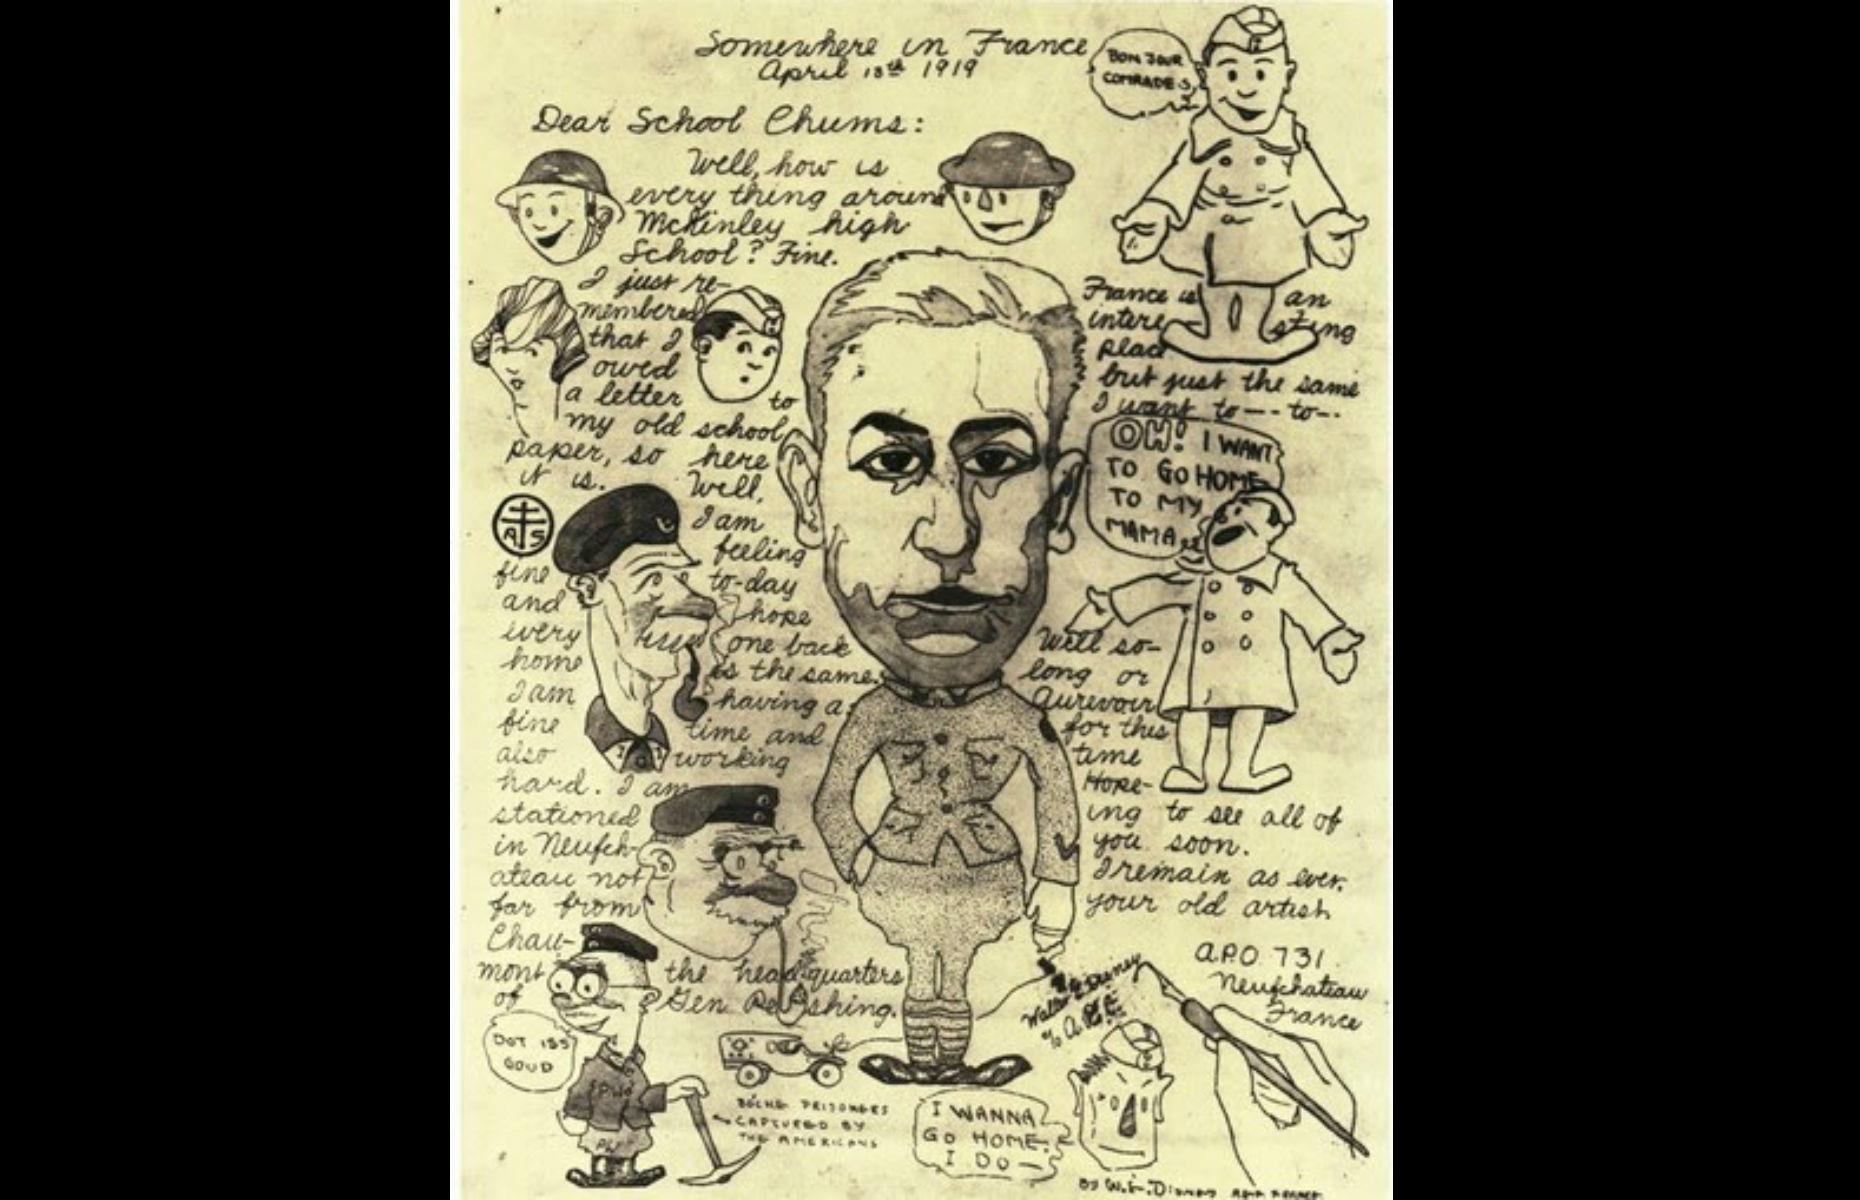 Somewhere in France
April 13th 1919
Dear School Chums:
Well, how is
every thing around
McKinley high
School? Fine.
I just re-
membered
that I
owed
a letter to
my old school
paper, so here
it is. Well,
I am
feeling
fine to-day
and hope
every one back
home is the same.
I am having a
fine time and
also working
hard. I am
stationed
in Neufch-
ateau not
far from
Chau-
mont the headquarters
of Gen Pershing.
A S
DOT ISS
GOUD
PW
PW
BOCHE PRISONERS
CAPTURED BY
THE AMERICANS
BON JOUR
COMRADES
France is an
intere sting
place
but just the same
I want to -- to--
OH! I WANT
TO GO HOME
TO MY
MAMA
Well so-
long or
Aurevoir
for this
time
Hope-
ing to see all of
you soon.
I remain as ever,
your old artist
Walt E Disney
% A.R.C.
A.P.O 731
Neufchateau
France
I WANNA
GO HOME
I DO—
BY W.E. DISNEY FRANCE